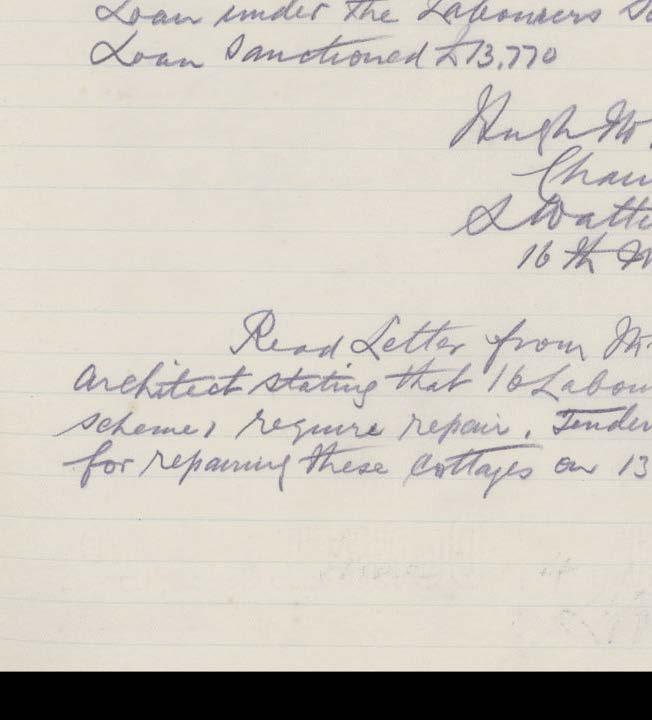 Loan under the Labourers
Loan Sanctioned £13,770
Hugh
Chair
S Watt
16 th
Read Letter from Mr.
Architect stating that 16 Labou
schemes require repair. Tender
for repairing these cottages on 13